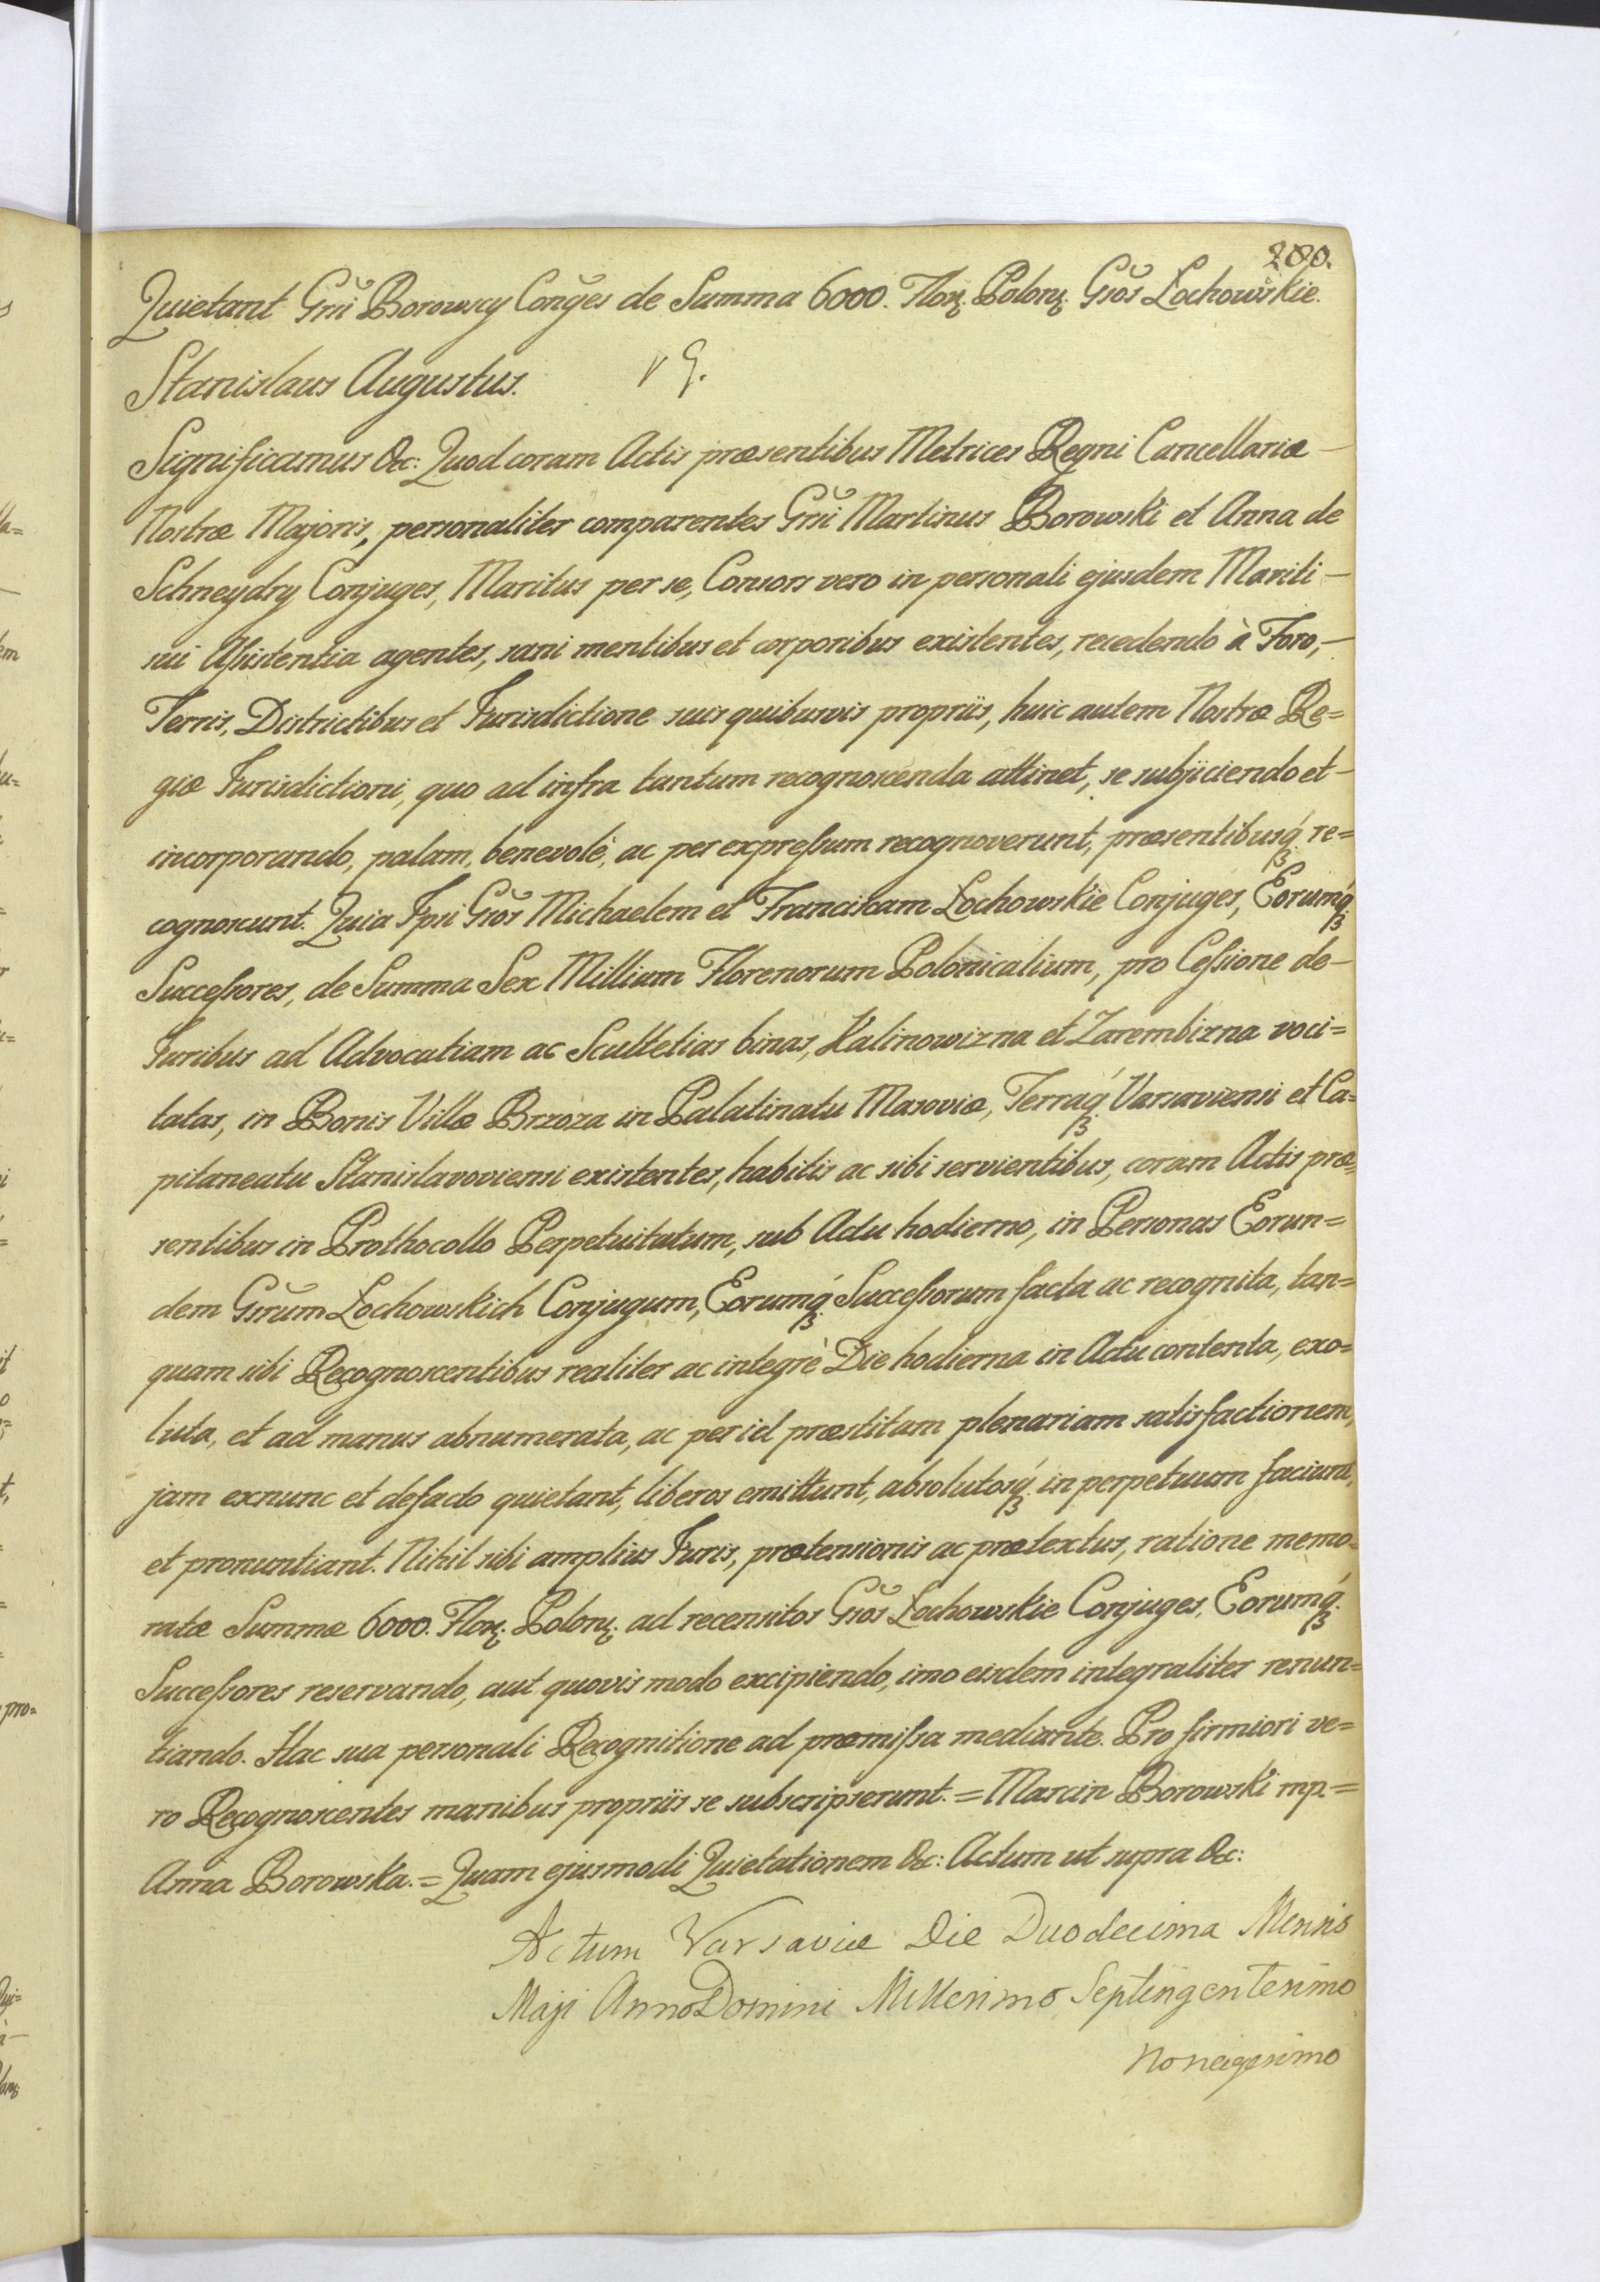 280.
Quietant Gñri Borowscy Conges de Summa 6000. Flor. Polon. Gsos Lochowskie.
Stanislaus Augustus.
Significamus &c: Quod coram Actis præsentibus Metrices Regni Cancellariæ
Nostræ Majoris, personaliter comparentes Gsri Martinus Borowski et Anna de
Schneydry Conjuges, Maritus per se, Consors vero in personali ejusdem Mariti
sui Assistentia agentes, sani mentibus et corporibus existentes, recedendo à Foro,
Terris, Districtibus et Jurisdictione suis quibusvis propriis, huic autem Nostræ Re=
giæ Jurisdictioni, quo ad infra tantum recognoscenda attinet, se subjiciendo et
incorporando, palam, benevolè, ac per expressum recognoverunt, præsentibusq́ re=
cognoscunt. Quia Ipsi Gsos Michaelem et Franciscam Lochowskie Conjuges, Eorumq́
Successores, de Summa Sex Millium Florenorum Polonicalium, pro Cessione de
Juribus ad Advocatiam ac Scultetias binas, Kalinowizna et Zarembizna voci=
tatas, in Bonis Villæ Brzoza in Palatinatu Masoviæ, Terráq́ Varsaviensi et Ca=
pitaneatu Stanislavoviensi existentes, habitis ac sibi servientibus, coram Actis præ=
sentibus in Prothocollo Perpetuitatum, sub Actu hodierno, in Personas Eorun=
dem Gsrum Lochowskich Conjugum, Eorumq́ Successorum facta ac recognita, tan=
quam sibi Recognoscentibus realiter ac integrè Die hodierna in Actu contenta, exo=
luta, et ad manus abnumerata, ac per id præstitam plenariam satisfactionem,
jam exnunc et defacto quietant, liberos emittunt, absolutosq́ in perpetuum faciunt,
et pronuntiant. Nihil sibi amplius Juris, prætensionis ac prætextus, ratione memo=
ratæ Summæ 6000. Flor. Polon. ad recensitos Gsos Lochowskie Conjuges, Eorumq́
Successores reservando, aut quovis modo excipiendo, imo eisdem integraliter renun=
tiando. Hac sua personali Recognitione ad præmissa mediante. Pro firmiori ve=
ro Recognoscentes manibus propriis se subscripserunt. = Marcin Borowski mp. =
Anna Borowska. = Quam ejusmodi Quietationem &c: Actum ut supra &c:
Actum Varsaviæ Die Duodecima Mensis
Maji Anno Domini Millesimo Septingentesimo
Nonagesimo